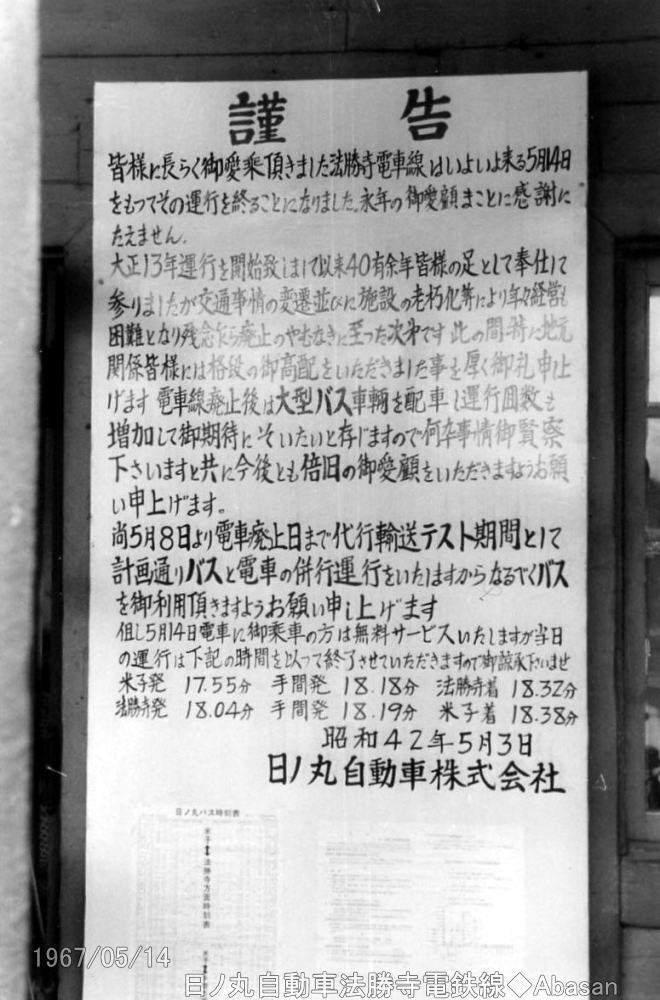 謹告
皆様に長らく御愛乗頂きました法勝寺電車線はいよいよ来る5月14日
をもってその運行を終ることになりました。永年の御愛顧まことに感謝に
たえません。
大正13年運行を開始致しまして以来40有余年皆様の足として奉仕して
参りましたが交通事情の変遷並びに施設の老朽化等により年々経営も
困難となり残念乍ら廃止のやむなきに至った次第です此の間特に地元
関係皆様には格段の御高配をいただきました事を厚く御礼申上
げます 電車線廃止後は大型バス車輌を配車し運行回数も
増加して御期待にそいたいと存じますので何卒事情御賢察
下さいますと共に今後とも倍旧の御愛顧をいただきますようお願
い申上げます。
尚5月8日より電車廃止日まで代行輸送テスト期間として
計画通りバスと電車の併行運行をいたしますからなるべくバス
を御利用頂きますようお願い申し上げます
但し5月14日電車に御乗車の方は無料サービスいたしますが当日
の運行は下記の時間を以って終了させていただきますので御諒承下さいませ
米子発 17.55分 手間発 18.18分 法勝寺着 18.32分
法勝寺発 18.04分 手間発 18.19分 米子着 18.38分
昭和42年5月3日
日ノ丸自動車株式会社
日ノ丸バス時刻表
米子⬌法勝寺方面時刻表
1967/05/14
日ノ丸自動車法勝寺電鉄線◆Abasan